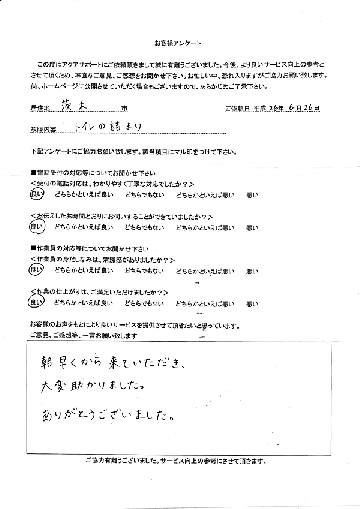 お客様アンケート
この度はアクアサポートにご依頼頂きまして誠に有難うございました。今後、より良いサービス向上の参考と
させて頂くため、率直なご意見、ご感想をお聞かせ下さい。お忙しい中、恐れ入りますがご協力お願い致します。
尚、ホームページに公開させていただく場合もございますので、あらかじめご了承下さい。
茨木 市 ご依頼日 平成 26年 6月 26日
依頼内容 トイレの詰まり
下記アンケートにご協力お願い致します。該当項目にマル印をつけて下さい。
■電話受付の対応等についてお聞かせ下さい
＜受付の電話対応は、わかりやすく丁寧な対応でしたか？＞
良い どちらかといえば良い どちらでもない どちらかといえば悪い 悪い
＜お伝えした時間どおりにお伺いすることができていましたか？＞
良い どちらかといえば良い どちらでもない どちらかといえば悪い 悪い
■作業員の対応等についてお聞かせ下さい
＜作業員の身だしなみは、清潔感がありましたか？＞
良い どちらかといえば良い どちらでもない どちらかといえば悪い 悪い
＜作業の仕上がりは、ご満足いただけましたか？＞
良い どちらかといえば良い どちらでもない どちらかといえば悪い 悪い
お客様のお声をもとにより良いサービスを提供させて頂きたいと思っています。
ご意見、ご感想等、一言お願い致します
朝早くから来ていただき、
大変助かりました。
ありがとうございました。
ご協力有難うございました。サービス向上の参考にさせて頂きます。